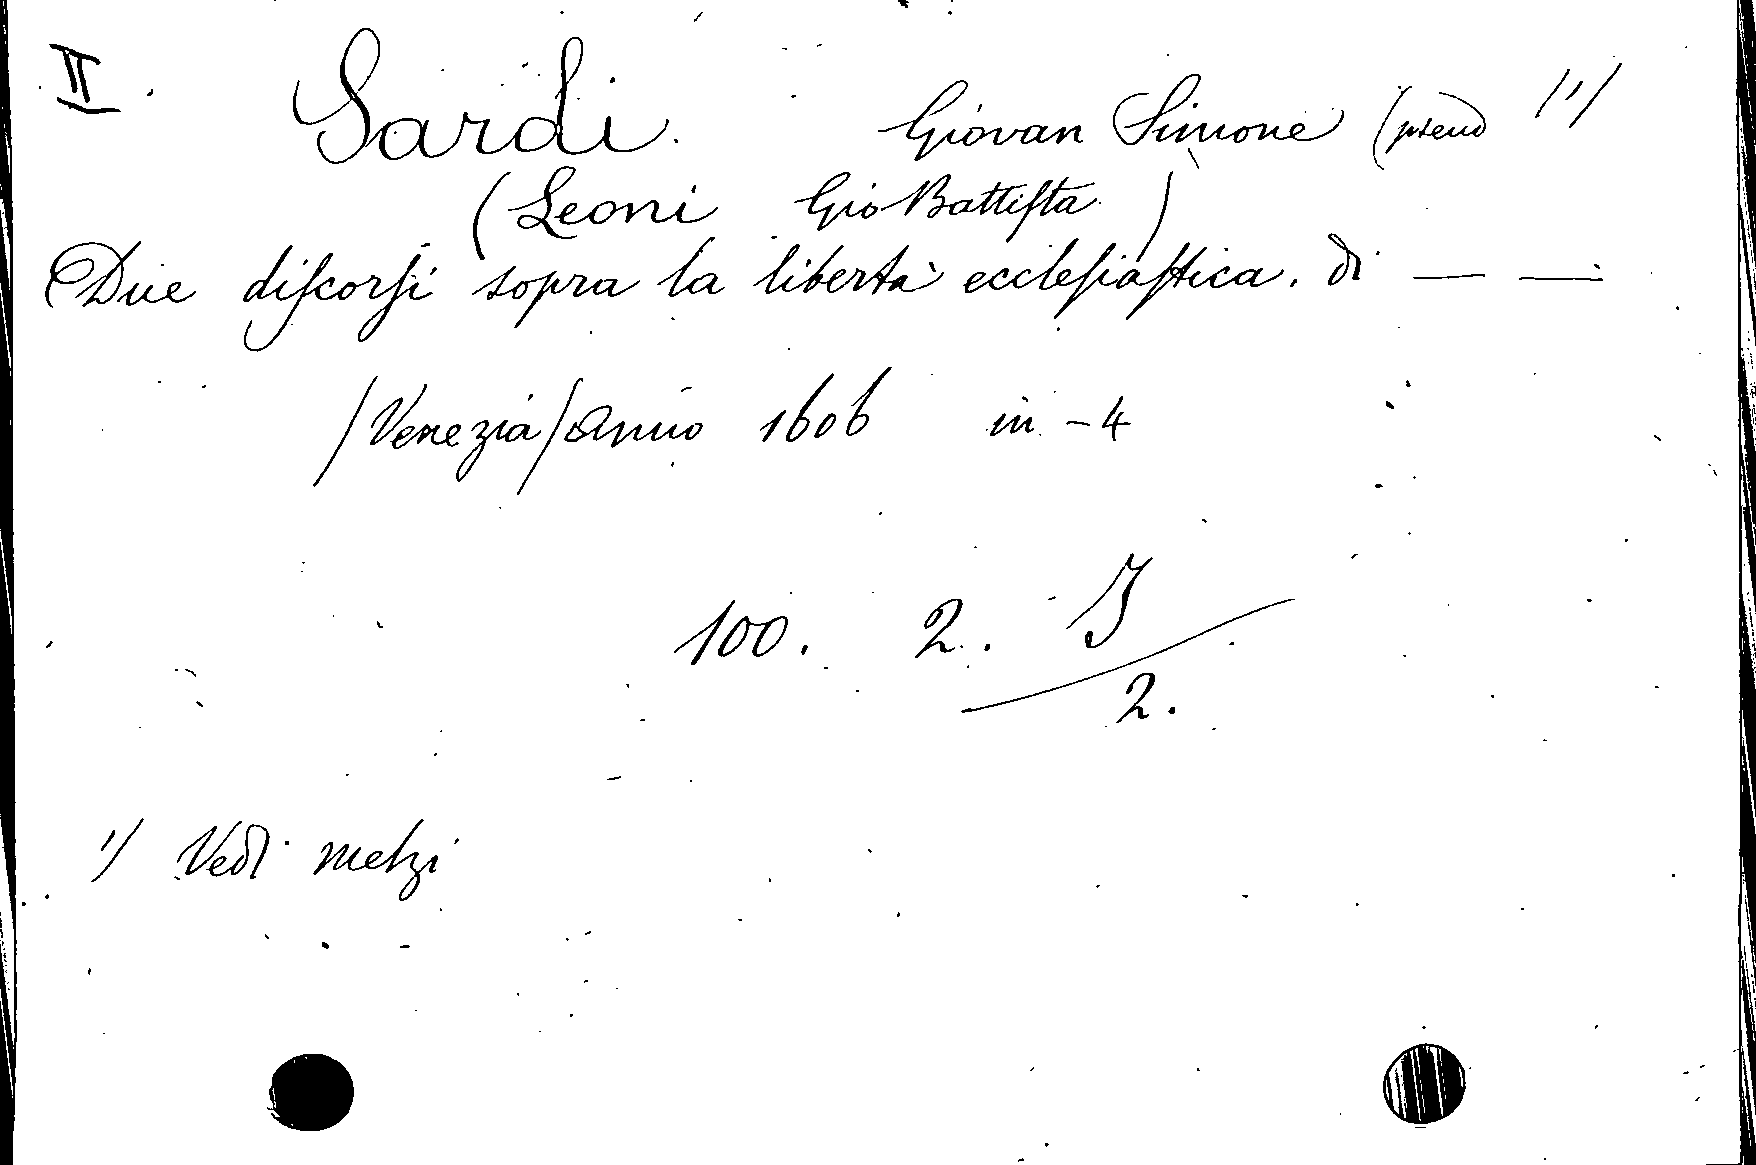 II. Sardi. Giovan Simone (pseud 1)
(Leoni Gio Battiſta)
Due diſcorſi sopra la libertà eccleſiaſtica. di — —
/Venezia/ Anno 1606 in-4
100. 2. I
2.
1) Vedi Melzi